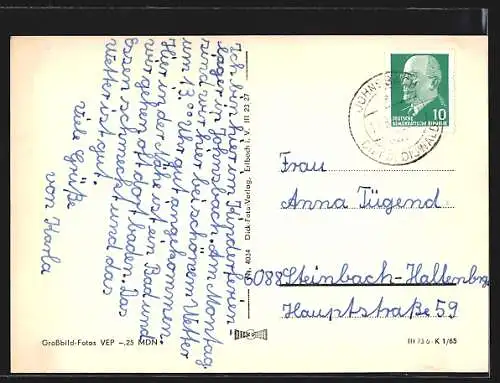 Ich bin hier im Kinderferien-
lager in Johnsbach. Am Montag
sind wir hier bei schönem Wetter
um 13.00 Uhr gut angekommen.
Hier in der Nähe ist ein Bad und
wir gehen oft dort baden. Das
Essen schmeckt und das
Wetter ist gut.
Viele Grüße
von Karla
Großbild-Fotos VEP -,25 MDN
Nr. 4034 Dick-Foto-Verlag, Erlbach i. V. III 23 27
DEUTSCHE
DEMOKRATISCHE REPUBLIK
10
Frau
Anna Tügend
6088 Steinbach-Hallenbrg
Hauptstraße 59
III 73 6 - K 1/65